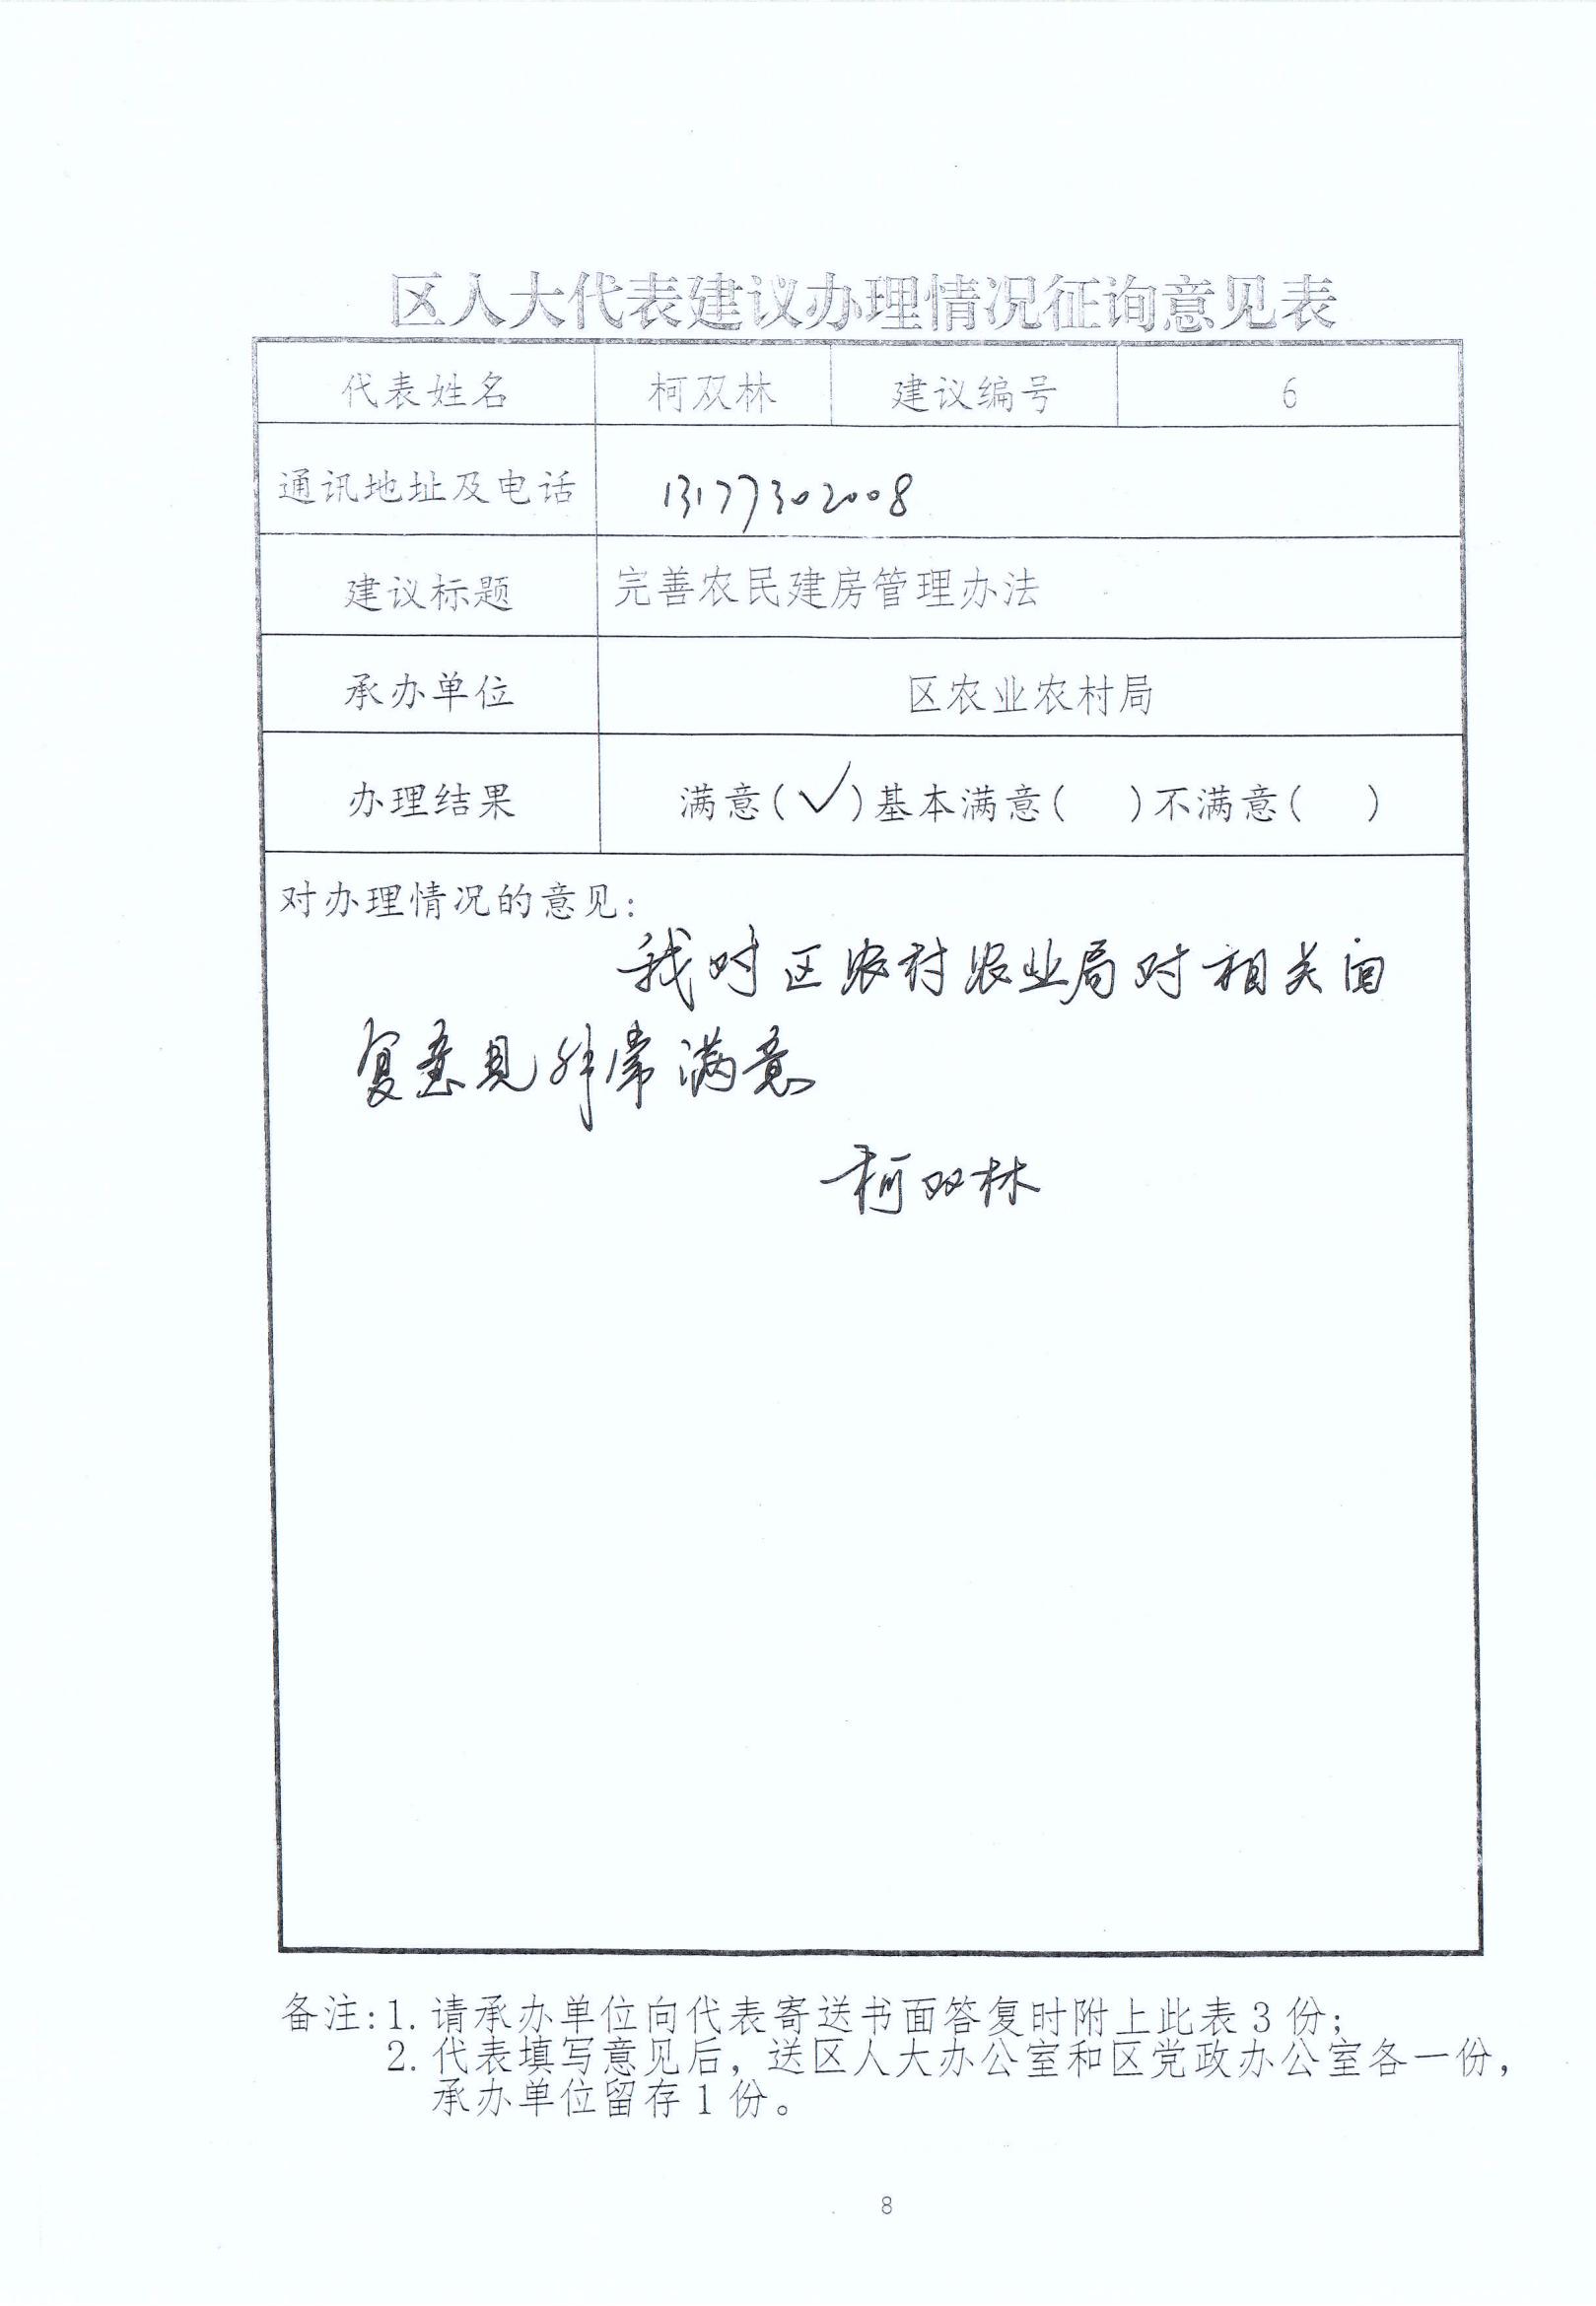 区人大代表建议办理情况征询意见表
代表姓名 柯双林 建议编号 6
通讯地址及电话 13177302008
建议标题 完善农民建房管理办法
承办单位 区农业农村局
办理结果 满意(√)基本满意( )不满意( )
对办理情况的意见:
我对区农村农业局对相关回
复意见非常满意
柯双林
备注:1.请承办单位向代表寄送书面答复时附上此表3份;
2.代表填写意见后,送区人大办公室和区党政办公室各一份,
承办单位留存1份。
8